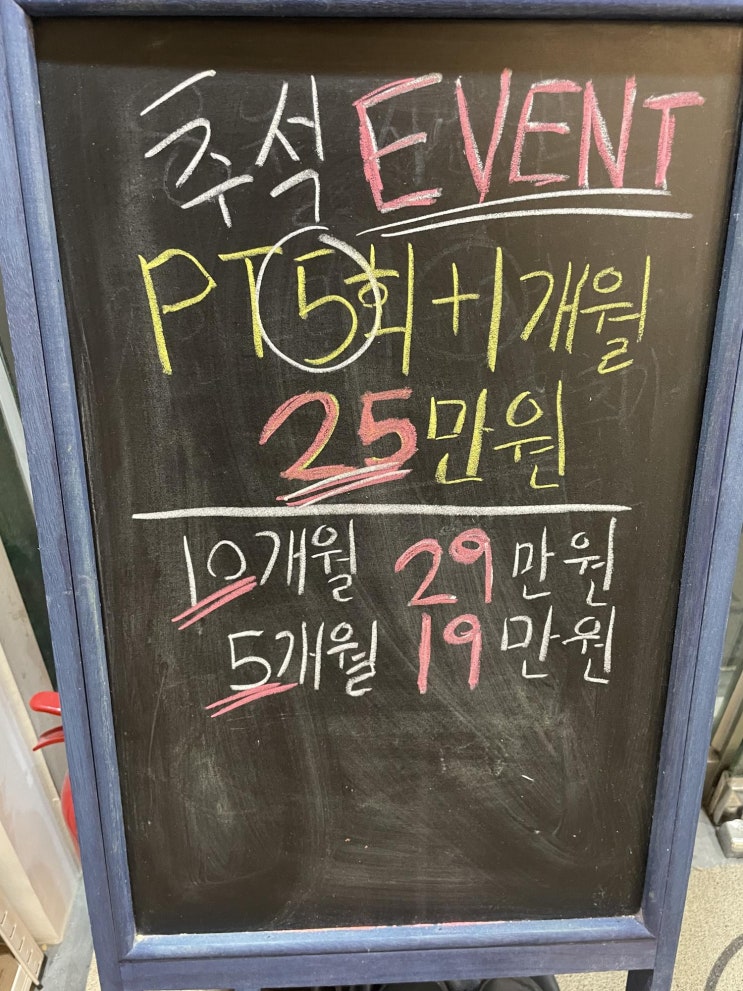 추석 EVENT
PT 5회 + 1개월
25만원
10개월 29만원
5개월 19만원